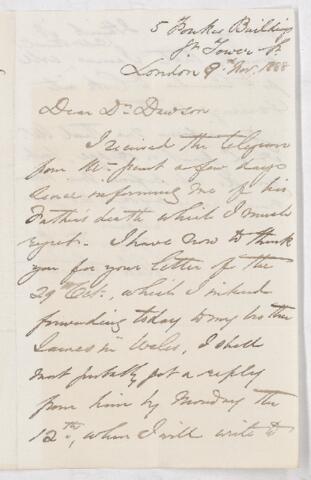 5 Fowkes Buildings
Gt. Tower St.
London 8th Nov. 1888
Dear Dr. Dawson
I received the telegram
from Mr. Grant a few days
since informing me of his
Father's death which I much
regret. I have now to thank
you for your letter of the
29 Oct., which I intend
forwarding today to my brother
James in Wales, I shall
most probably get a reply
from him by Monday the
12th, when I will write to